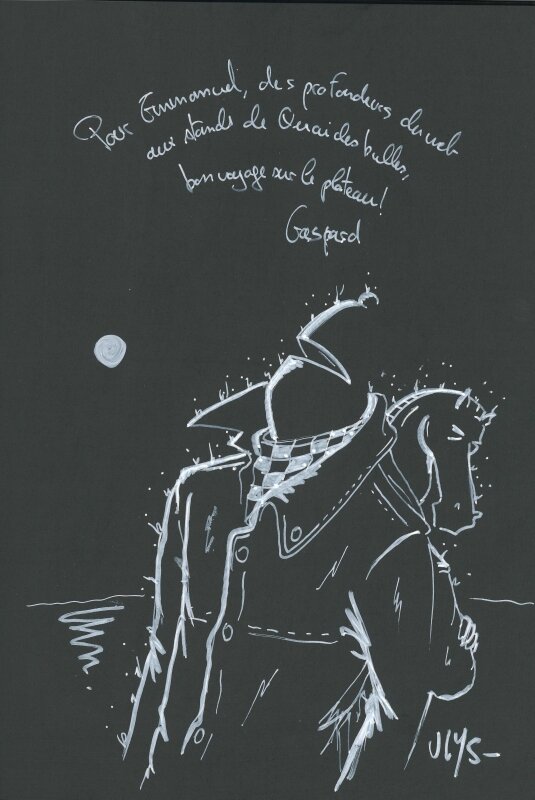 Pour Emmanuel, des profondeurs du web
aux stands de Quai des bulles,
bon voyage sur le plateau!
Gaspard
ULYS-